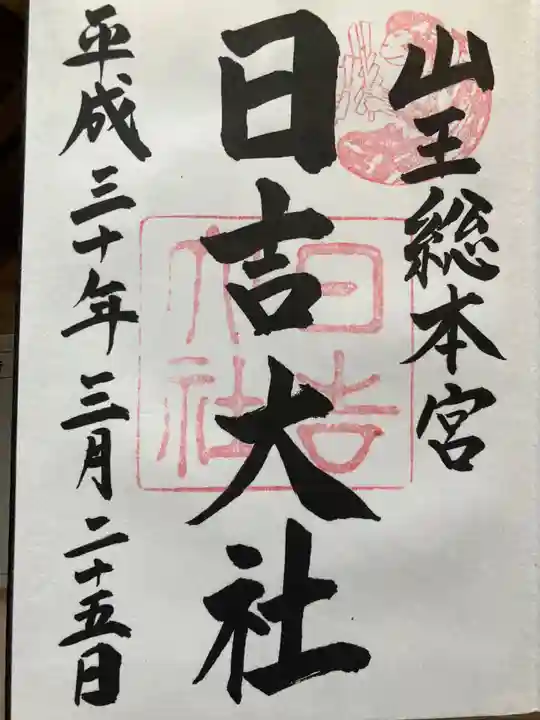 山王総本宮
日吉大社
日吉大社
平成三十年三月二十五日